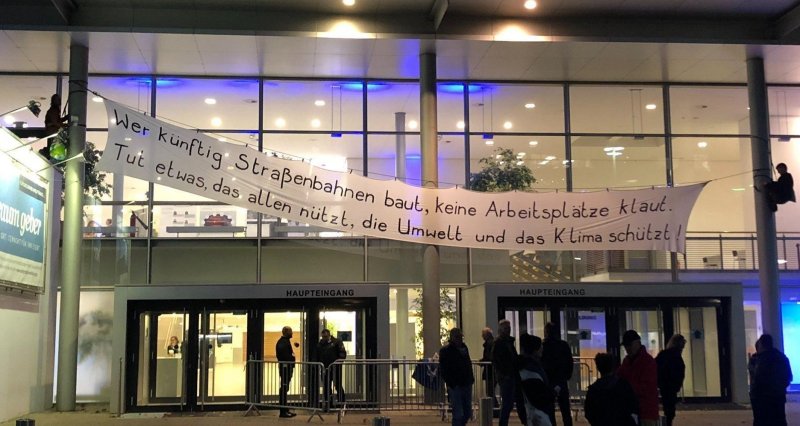 Wer künftig Straßenbahnen baut, keine Arbeitsplätze klaut.
Tut etwas, das allen nützt, die Umwelt und das Klima schützt!
HAUPTEINGANG
HAUPTEINGANG
geber